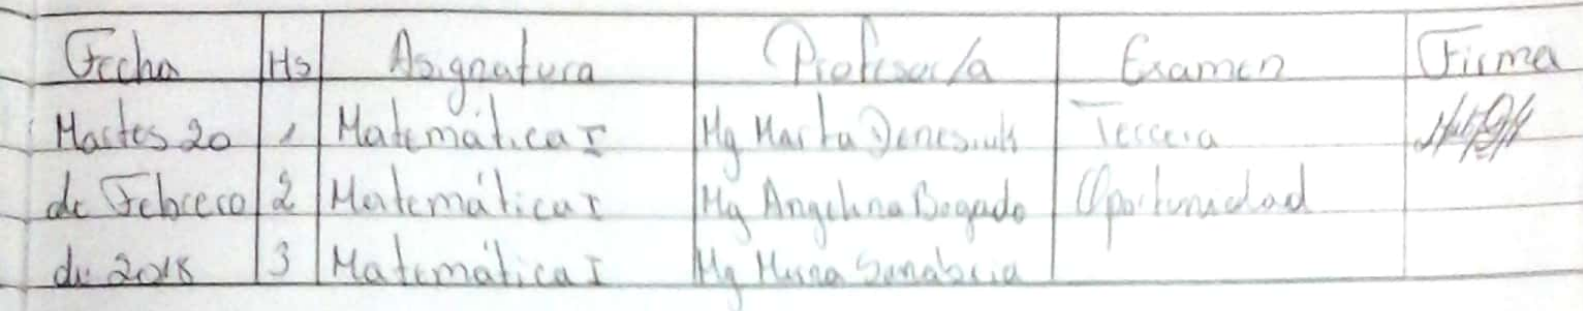 Fecha Hs Asignatura Profesor/a Examen Firma
Martes 20 1 Matemática I Mg Marta Denesiuk Tercera
de Febrero 2 Matemática I Mg Angelina Bogado Oportunidad
de 2018 3 Matemática I Mg Mirna Sanabria